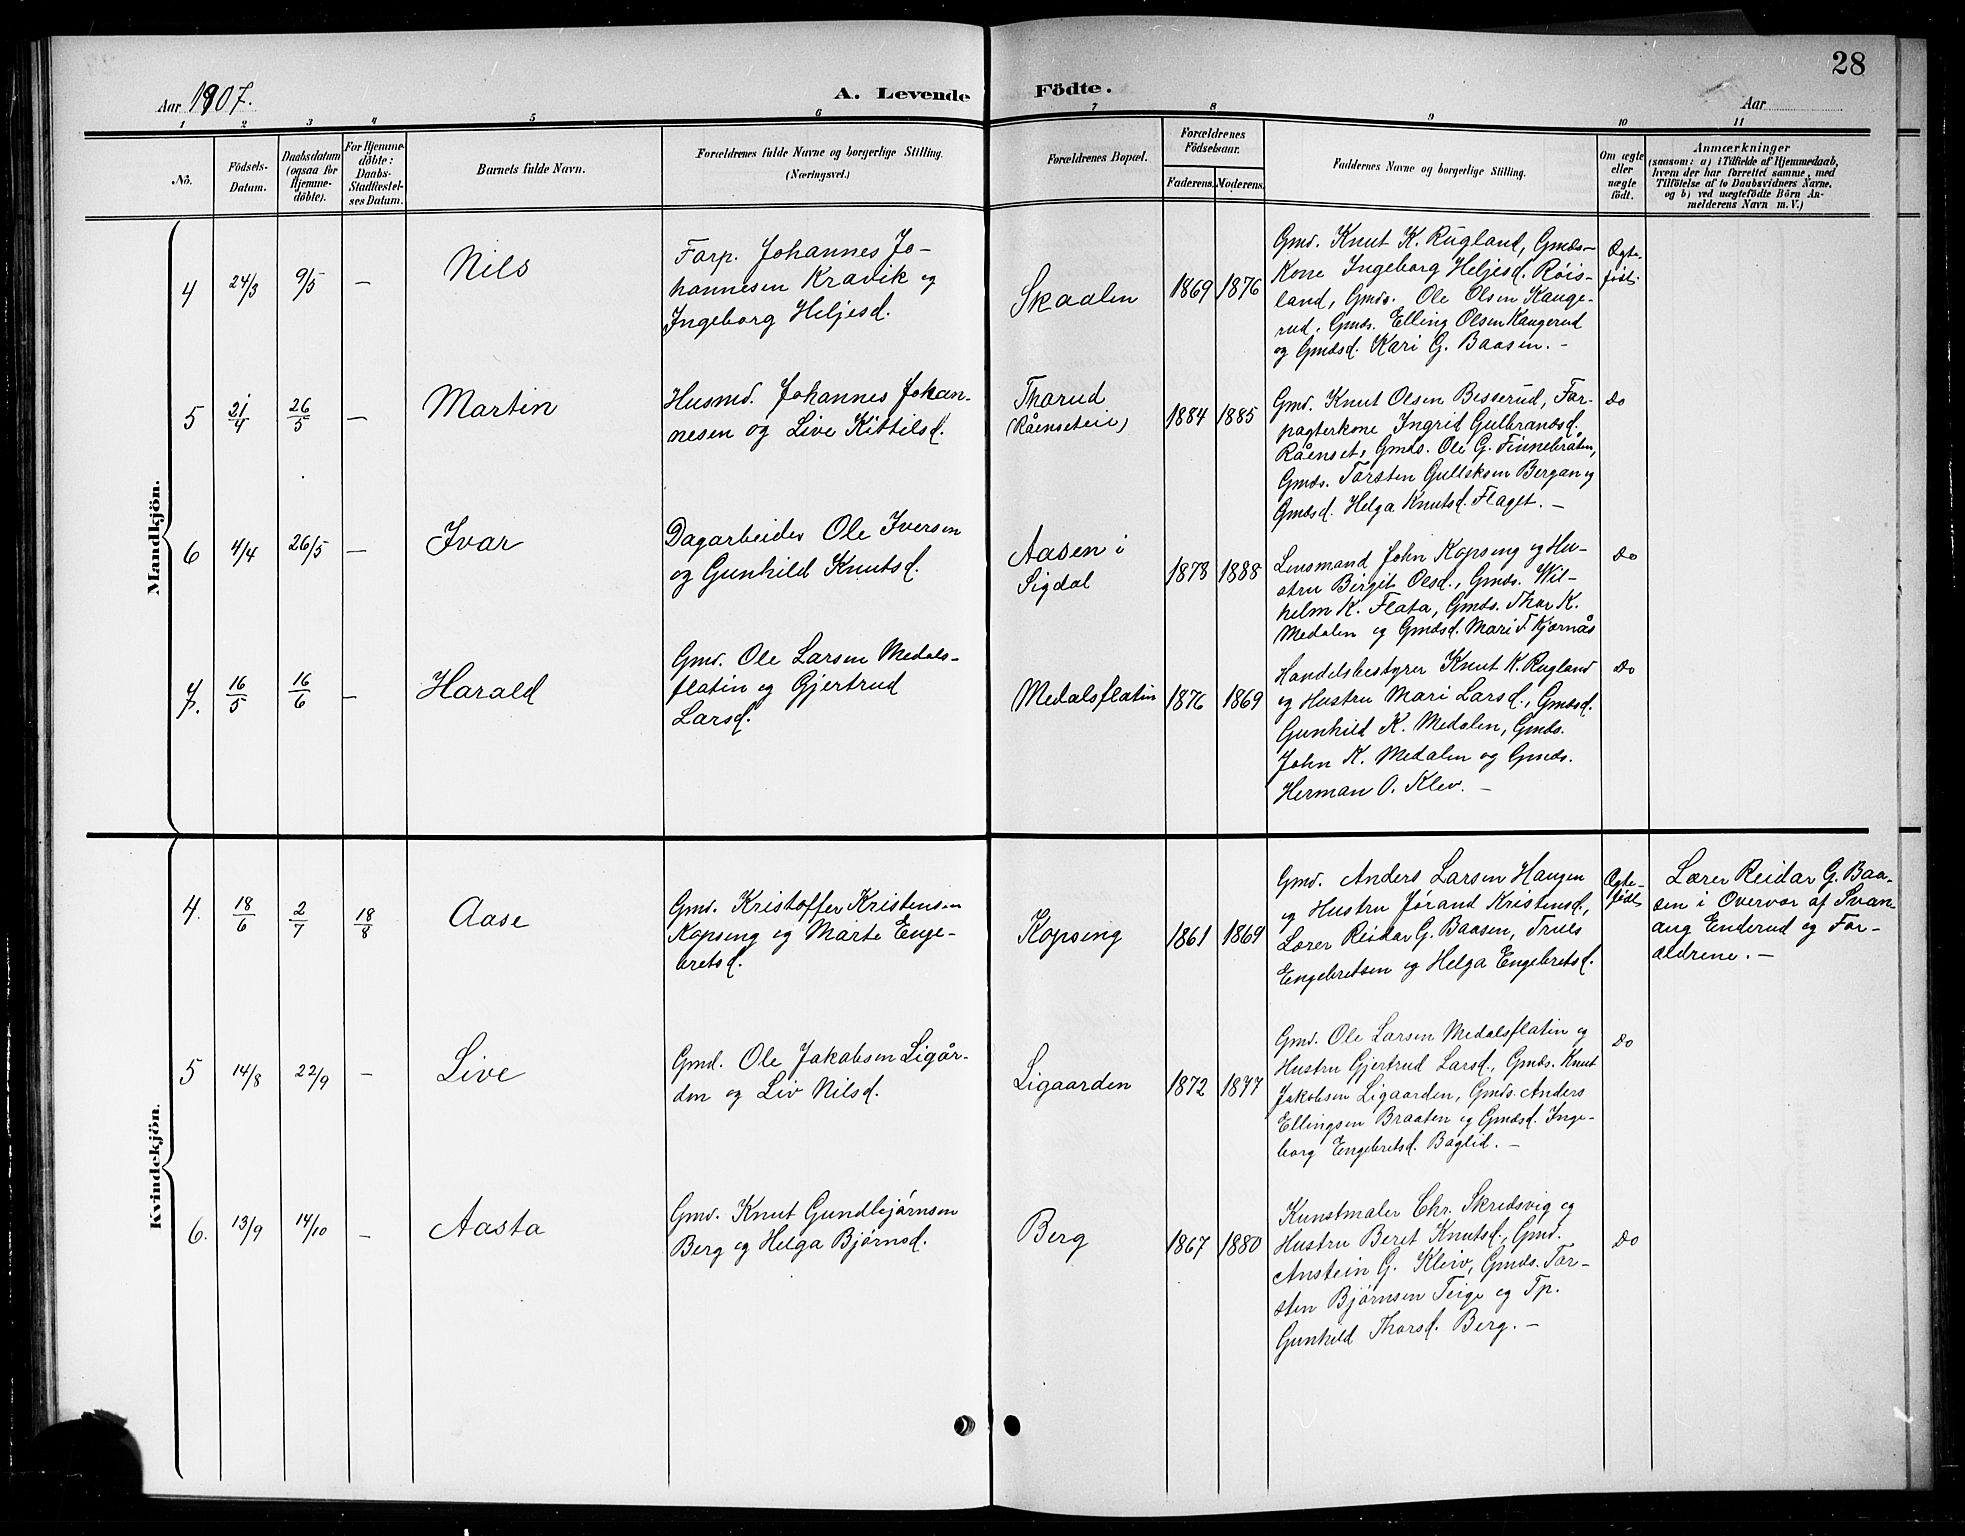 28
Aar 1907.
A. Levende Födte.
Aar
1 2 3 4 5 6 7 8 9 10 11
No.
Födsels-
Datum.
Daabsdatum
(ogsaa for
Hjemme-
döbte).
For Hjemme-
döbte:
Daabs-
Stadfæstel-
ses Datum.
Barnets fulde Navn.
Forældrenes fulde Navne og borgerlige Stilling.
(Næringsvei.)
Forældrenes Bopæl.
Forældrenes
Födselsaar.
Faderens. Moderens.
Faddernes Navne og borgerlige Stilling.
Om ægte
eller
uægte
födt.
Anmærkninger
(saasom: a) i Tilfælde af Hjemmedaab,
hvem der har forrettet samme, med
Tilföielse af to Daabsvidners Navne,
og b) ved uægtefödte Börn An-
melderens Navn m. V.)
Mandkjön.
4 24/3 9/5 —
Nils
Forp. Johannes Jo-
hannesen Kravik og
Ingeborg Heljesd.
Skaalen
1869 1876
Gmd. Knut K. Rugland, Gmds-
Kone Ingeborg Heljesd. Röis-
land, Gmds. Ole Olsen Kauge-
rud, Gmds. Elling Olsen Kaugerud
og Gmdsd. Kari G. Baasen. —
Ægte-
födt
5 21/4 26/5 —
Martin
Husmd. Johannes Johan-
nesen og Live Kittilsd.
Thorud
(Råenseteie)
1884 1885
Gmd. Knut Olsen Besserud, For-
pagterkone Ingrid Gulbrandsd.
Råenset, Gmds. Ole G. Finnebråten,
Gmds. Torsten Gulleksen Bergan og
Gmdsd. Helga Knutsd. Flaget. —
Do
6 4/4 26/5 —
Ivar
Dagarbeider Ole Iversen
og Gunhild Knutsd.
Aasen i
Sigdal
1878 1888
Lensmand John Kopseng og Hu-
stru Birgit Olsd., Gmds. Wil-
helm K. Flata, Gmds. Thor K.
Medalen og Gmdsd. Mari T. Kjørnås
Do
7. 16/5 16/6 —
Harald
Gmd. Ole Larsen Medals-
flatin og Gjertrud
Larsd.
Medalsflatin
1876 1869
Handelsbestyrer Knut K. Rugland
og Hustru Mari Larsd., Gmdsd.
Gunhild K. Medalen, Gmds.
John K. Medalen og Gmds.
Herman O. Klev. —
Do
Kvindekjön.
4. 18/6 2/7 18/8
Aase
Gmd. Kristoffer Kristensen
Kopseng og Marte Enge-
bretsd.
Kopseng
1861 1869
Gmd. Anders Larsen Haugen
og Hustru Jørand Kristensd,
Lærer Reidar G. Baasen, Truls
Engebretsen og Helga Engebretsd.
Ægte-
födt
Lærer Reidar G. Baa-
sen i Overvær af Svan-
aug Enderud og For-
ældrene. —
5 14/8 22/9 —
Live
Gmd. Ole Jakobsen Ligår-
den og Liv Nilsd.
Ligaarden
1872 1877
Gmd. Ole Larsen Medalsflatin og
Hustru Gjertrud Larsd., Gmds. Knut
Jakobsen Ligaarden, Gmds. Anders
Ellingsen Braaten og Gmdsd. Inge-
borg Engebretsd. Baglid. —
Do
6. 13/9 14/10 —
Aasta
Gmd. Knut Gundbjørnsen
Berg og Helga Bjørnsd.
Berg
1867 1880
Kunstmaler Chr. Skredsvig og
Hustru Beret Knutsd., Gmd.
Anstein G. Kleiv, Gmds. Tor-
sten Bjørnsen Teige og Tp.
Gunhild Thorsd. Berg. —
Do